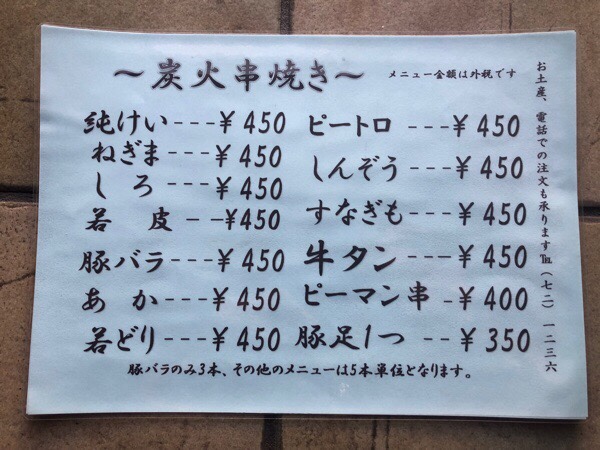 ～炭火串焼き～
メニュー金額は外税です
純けい---¥450
ねぎま---¥450
しろ---¥450
若皮--¥450
豚バラ---¥450
あか---¥450
若どり--¥450
ピートロ---¥450
しんぞう--¥450
すなぎも--¥450
牛タン---¥450
ピーマン串-¥400
豚足1つ--¥350
豚バラのみ3本、その他のメニューは5本単位となります。
お土産、電話での注文も承ります℡(七二)一二三六